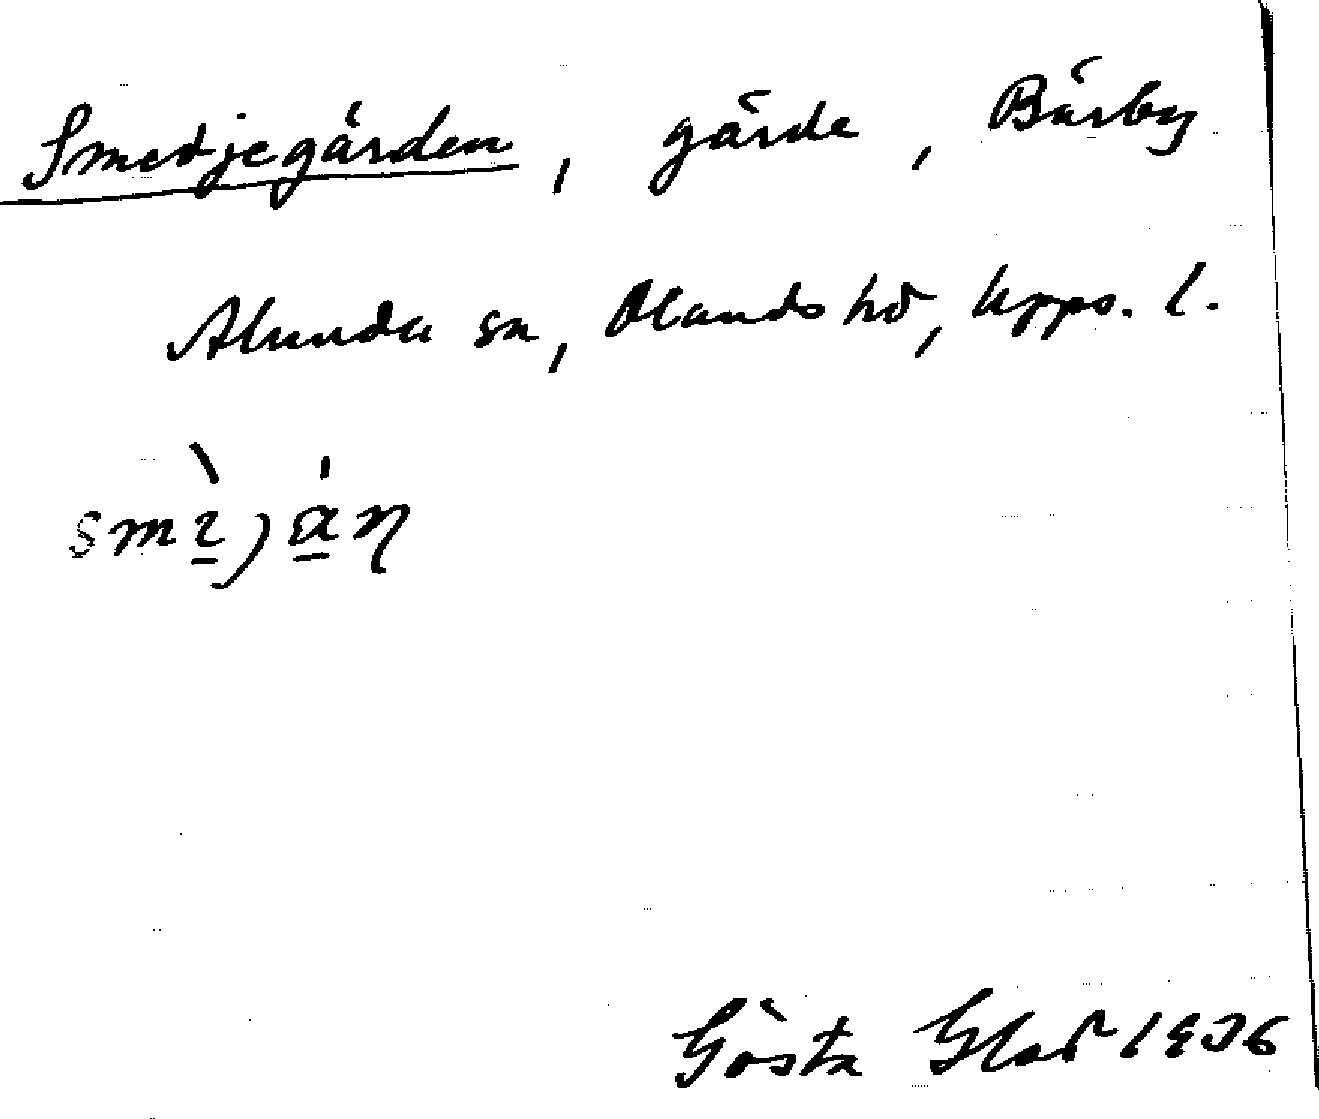 Smedjegården, gärde, Bärby
Alunda sn, Olands hd, Upps. l.
Gösta Glad 1936